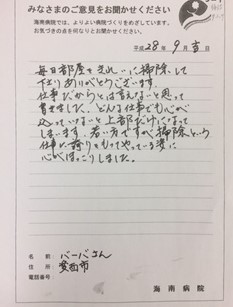 みなさまのご意見をお聞かせください
海南病院では、よりよい病院づくりをめざしています。
お気づきの点を何なりとお聞かせください。
平成 28 年 9 月 日
毎日部屋をきれいに掃除して
下さりありがとうございます。
仕事だからとは言えないと思って
書きました。どんな仕事でも心が
込っていないと上部だけになって
しまいます。若い方ですが掃除という
仕事に誇りをもってやっている姿に
心がほっこりしました。
名前 バーバさん
住所 愛西市
電話番号
海南病院